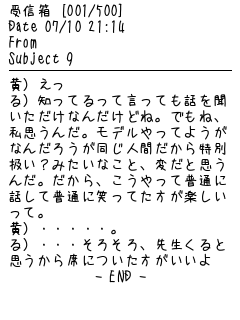 受信箱 [001/500]
Date 07/10 21:14
From
Subject 9
黄）えっ
る）知ってるって言っても話を聞
いただけなんだけどね。でもね、
私思うんだ。モデルやってようが
なんだろうが同じ人間だから特別
扱い？みたいなこと、変だと思う
んだ。だから、こうやって普通に
話して普通に笑ってた方が楽しい
って。
黄）・・・・・。
る）・・・そろそろ、先生くると
思うから席についた方がいいよ
- END -